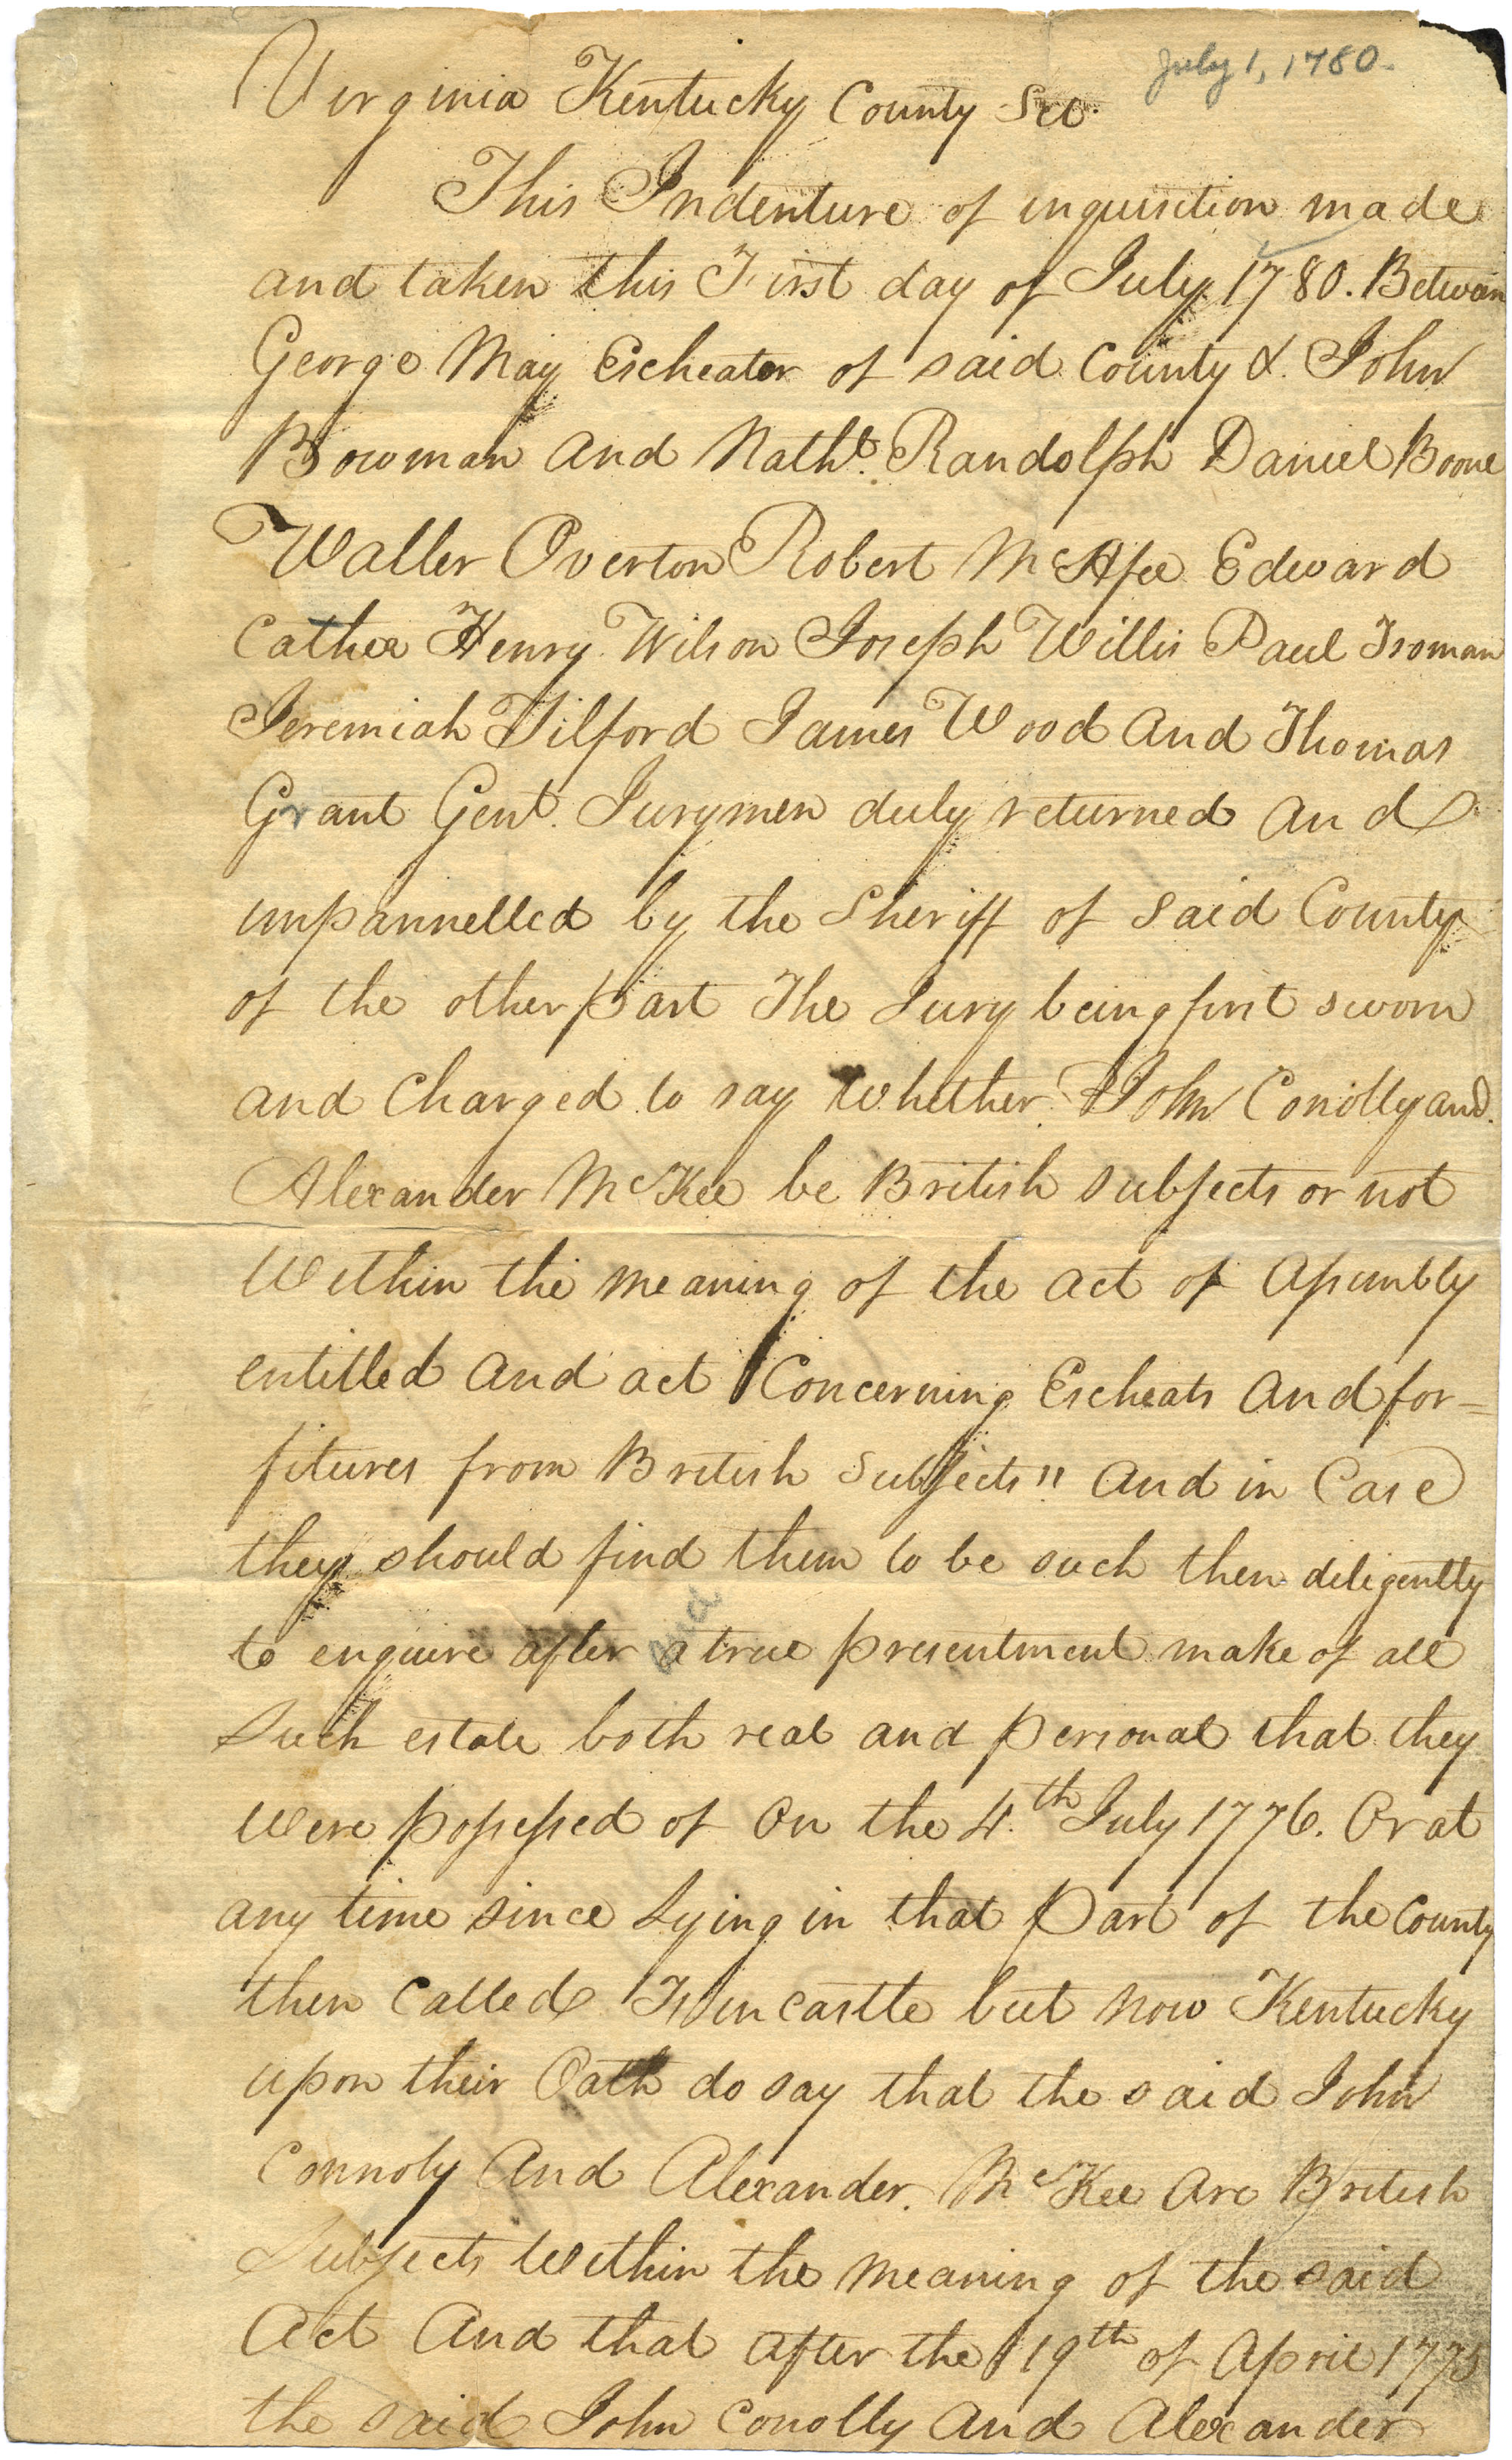 July 1, 1780.
Virginia Kentucky County Sct.
This Indenture of inquisition made
and taken this First day of July 1780. Between
George May Escheator of said County & John
Bowman and Nathl. Randolph Daniel Boone
Waller Overton Robert McAfee Edward
Cather Henry Wilson Joseph Willis Paul Froman
Jeremiah Tilford James Wood and Thomas
Grant Gent. Jurymen duly returned and
impannelled by the Sheriff of said County
of the other part The Jury being first sworn
and Charged to say Whether John Conolly and
Alexander McKee be British subjects or not
Within the meaning of the act of Assembly
entitled and act Concerning Escheats and for=
fitures from British Subjects" and in Case
they should find them to be such then diligently
to enquire after and a true presentment make of all
Such estate both real and personal that they
Were possessed of on the 4.th July 1776. Or at
any time since Lying in that Part of the County
then Called Fincastle but now Kentucky
upon their Oath do say that the said John
Connoly And Alexander McKee Are British
Subjects Within the meaning of the said
Act And that after the 19th of April 1775
the said John Conolly And Alexander